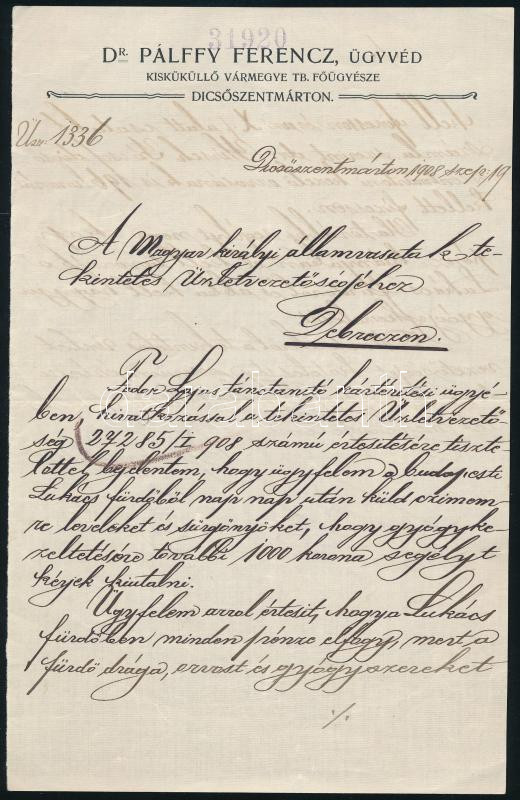 31920
DR. PÁLFFY FERENCZ, ÜGYVÉD
KISKÜKÜLLŐ VÁRMEGYE TB. FŐÜGYÉSZE
DICSŐSZENTMÁRTON.
1336
Dicsőszentmárton, 1908 szep. 19
A Magyar királyi államvasutak te-
kintetes Üzletvezetőségéhez
Debreczen.
Fodor Lajos tánctanító kártérítési ügyé-
ben, hivatkozással a tekintetes Üzletvezető-
ség 27285/I 908 számú értesítésére tiszte-
lettel bejelentem, hogy ügyfelem a budapesti
Lukács fürdőből nap nap után küld czimem-
re leveleket és sürgönyöket, hogy gyógyke-
zeltetésére további 1000 korona segélyt
kérjek kiutalni.
Ügyfelem arról értesít, hogy a Lukács
fürdőben minden pénze elfogy, mert a
fürdő drága, orvost és gyógyszereket
./.